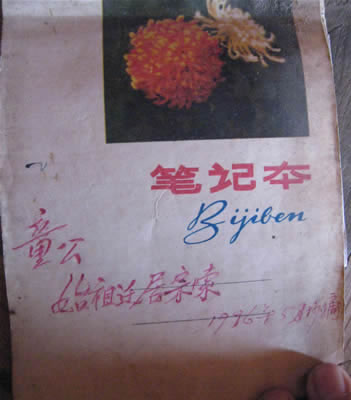 笔记本
Bijiben
童公
始祖迁居宗索
1996年5月